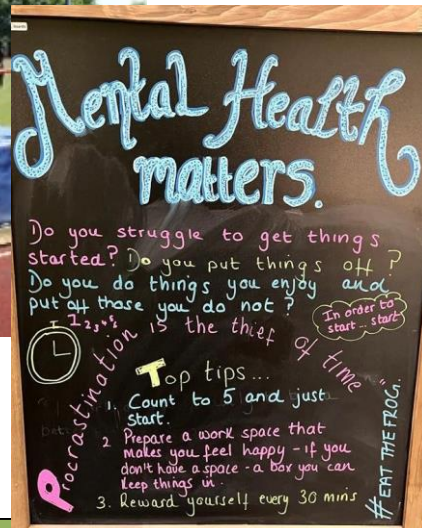 Mental Health
matters.
Do you struggle to get things
started? Do you put things off?
Do you do things you enjoy and
put off those you do not?
In order to
start ... start
Procrastination is the thief of time"
Top tips...
1. Count to 5 and just
start.
2 Prepare a work space that
makes you feel happy - if you
don't have a space - a box you can
keep things in.
3. Reward yourself every 30 mins
#EAT THE FROG.